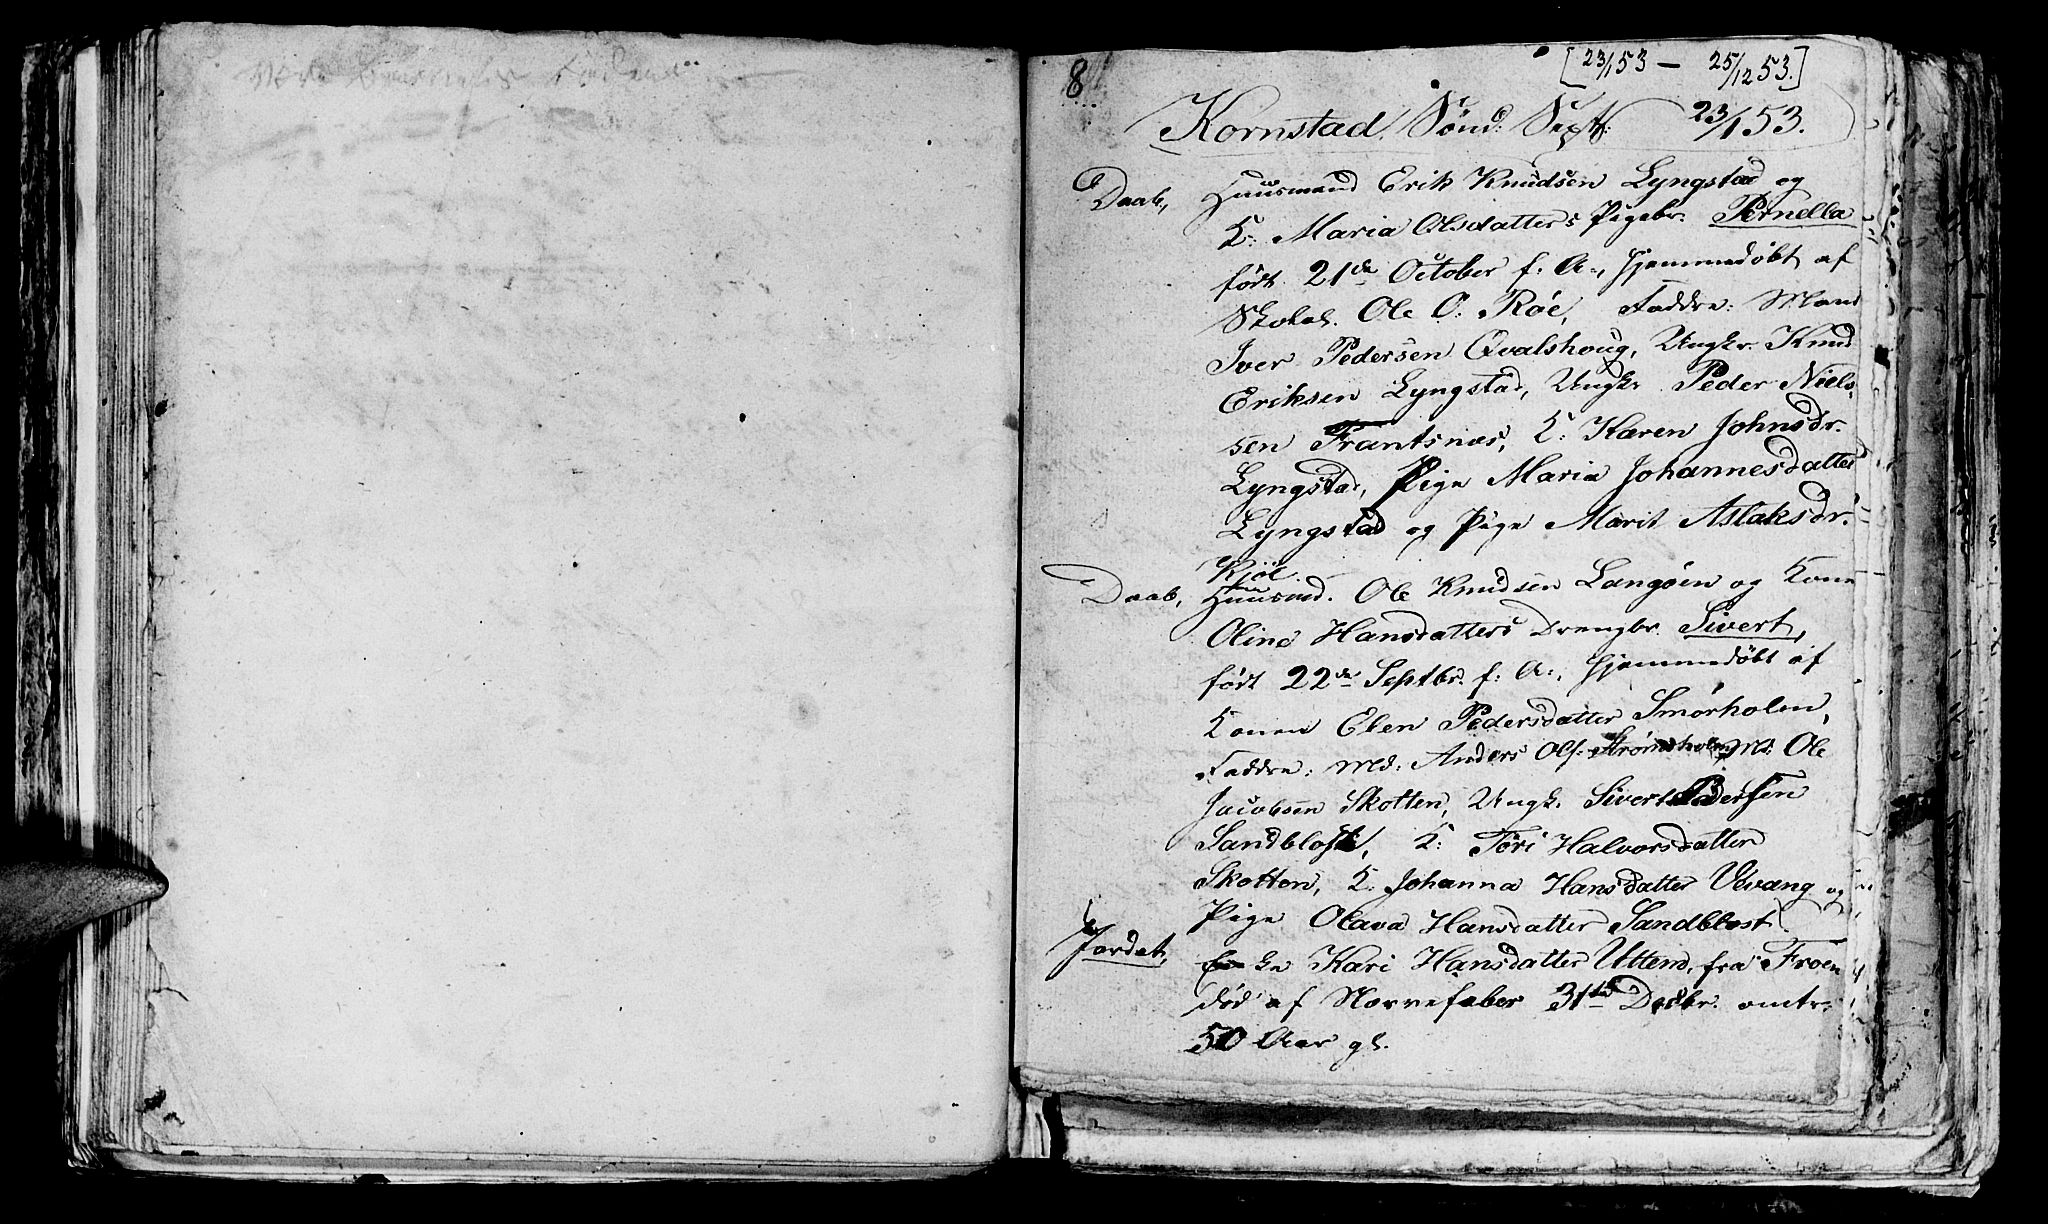 8
[23/1 53 — 25/12 53.]
Kornstad, Sönd: Sept: 23/1 53.
Daab, Huusmand Erik Knudsen Lyngstad og
K: Maria Olsdatters Pigebr. Pernella
født 21de October f: A:, hjemmedøbt af
Skolel. Ole O: Röe, Faddre: Mand
Iver Pedersen Qvalshoug, Ungkr. Knud
Eriksen Lyngstad, Ungkr Peder Niel-
sen Frantsnæs, K: Karen Johnsdr.
Lyngstad, Pige Maria Johannesdatter
Lyngstad og Pige Marit Aslaksdr.
Kjöl.
Daab, Huusmd. Ole Knudsen Langöen og Kone
Oline Hansdatters Drengbr. Sivert,
født 22de Septbr. f: A:, hjemmedøbt af
Konen Elen Pedersdatter Smörholen,
Faddre: Md: Anders Ols: Strömsholm, Md: Ole
Jacobsen Skotten, Ungk. Sivert Pedersen
Sandblost, K: Töri Halvorsdatter
Skotten, K. Johanna Hansdatter Vevang og
Pige Olava Hansdatter Sandblost.
Jordet, Enke Kari Hansdatter Uttend. fra Froen
død af Nervefeber 31te Decbr. omtr.
50 Aar gl.